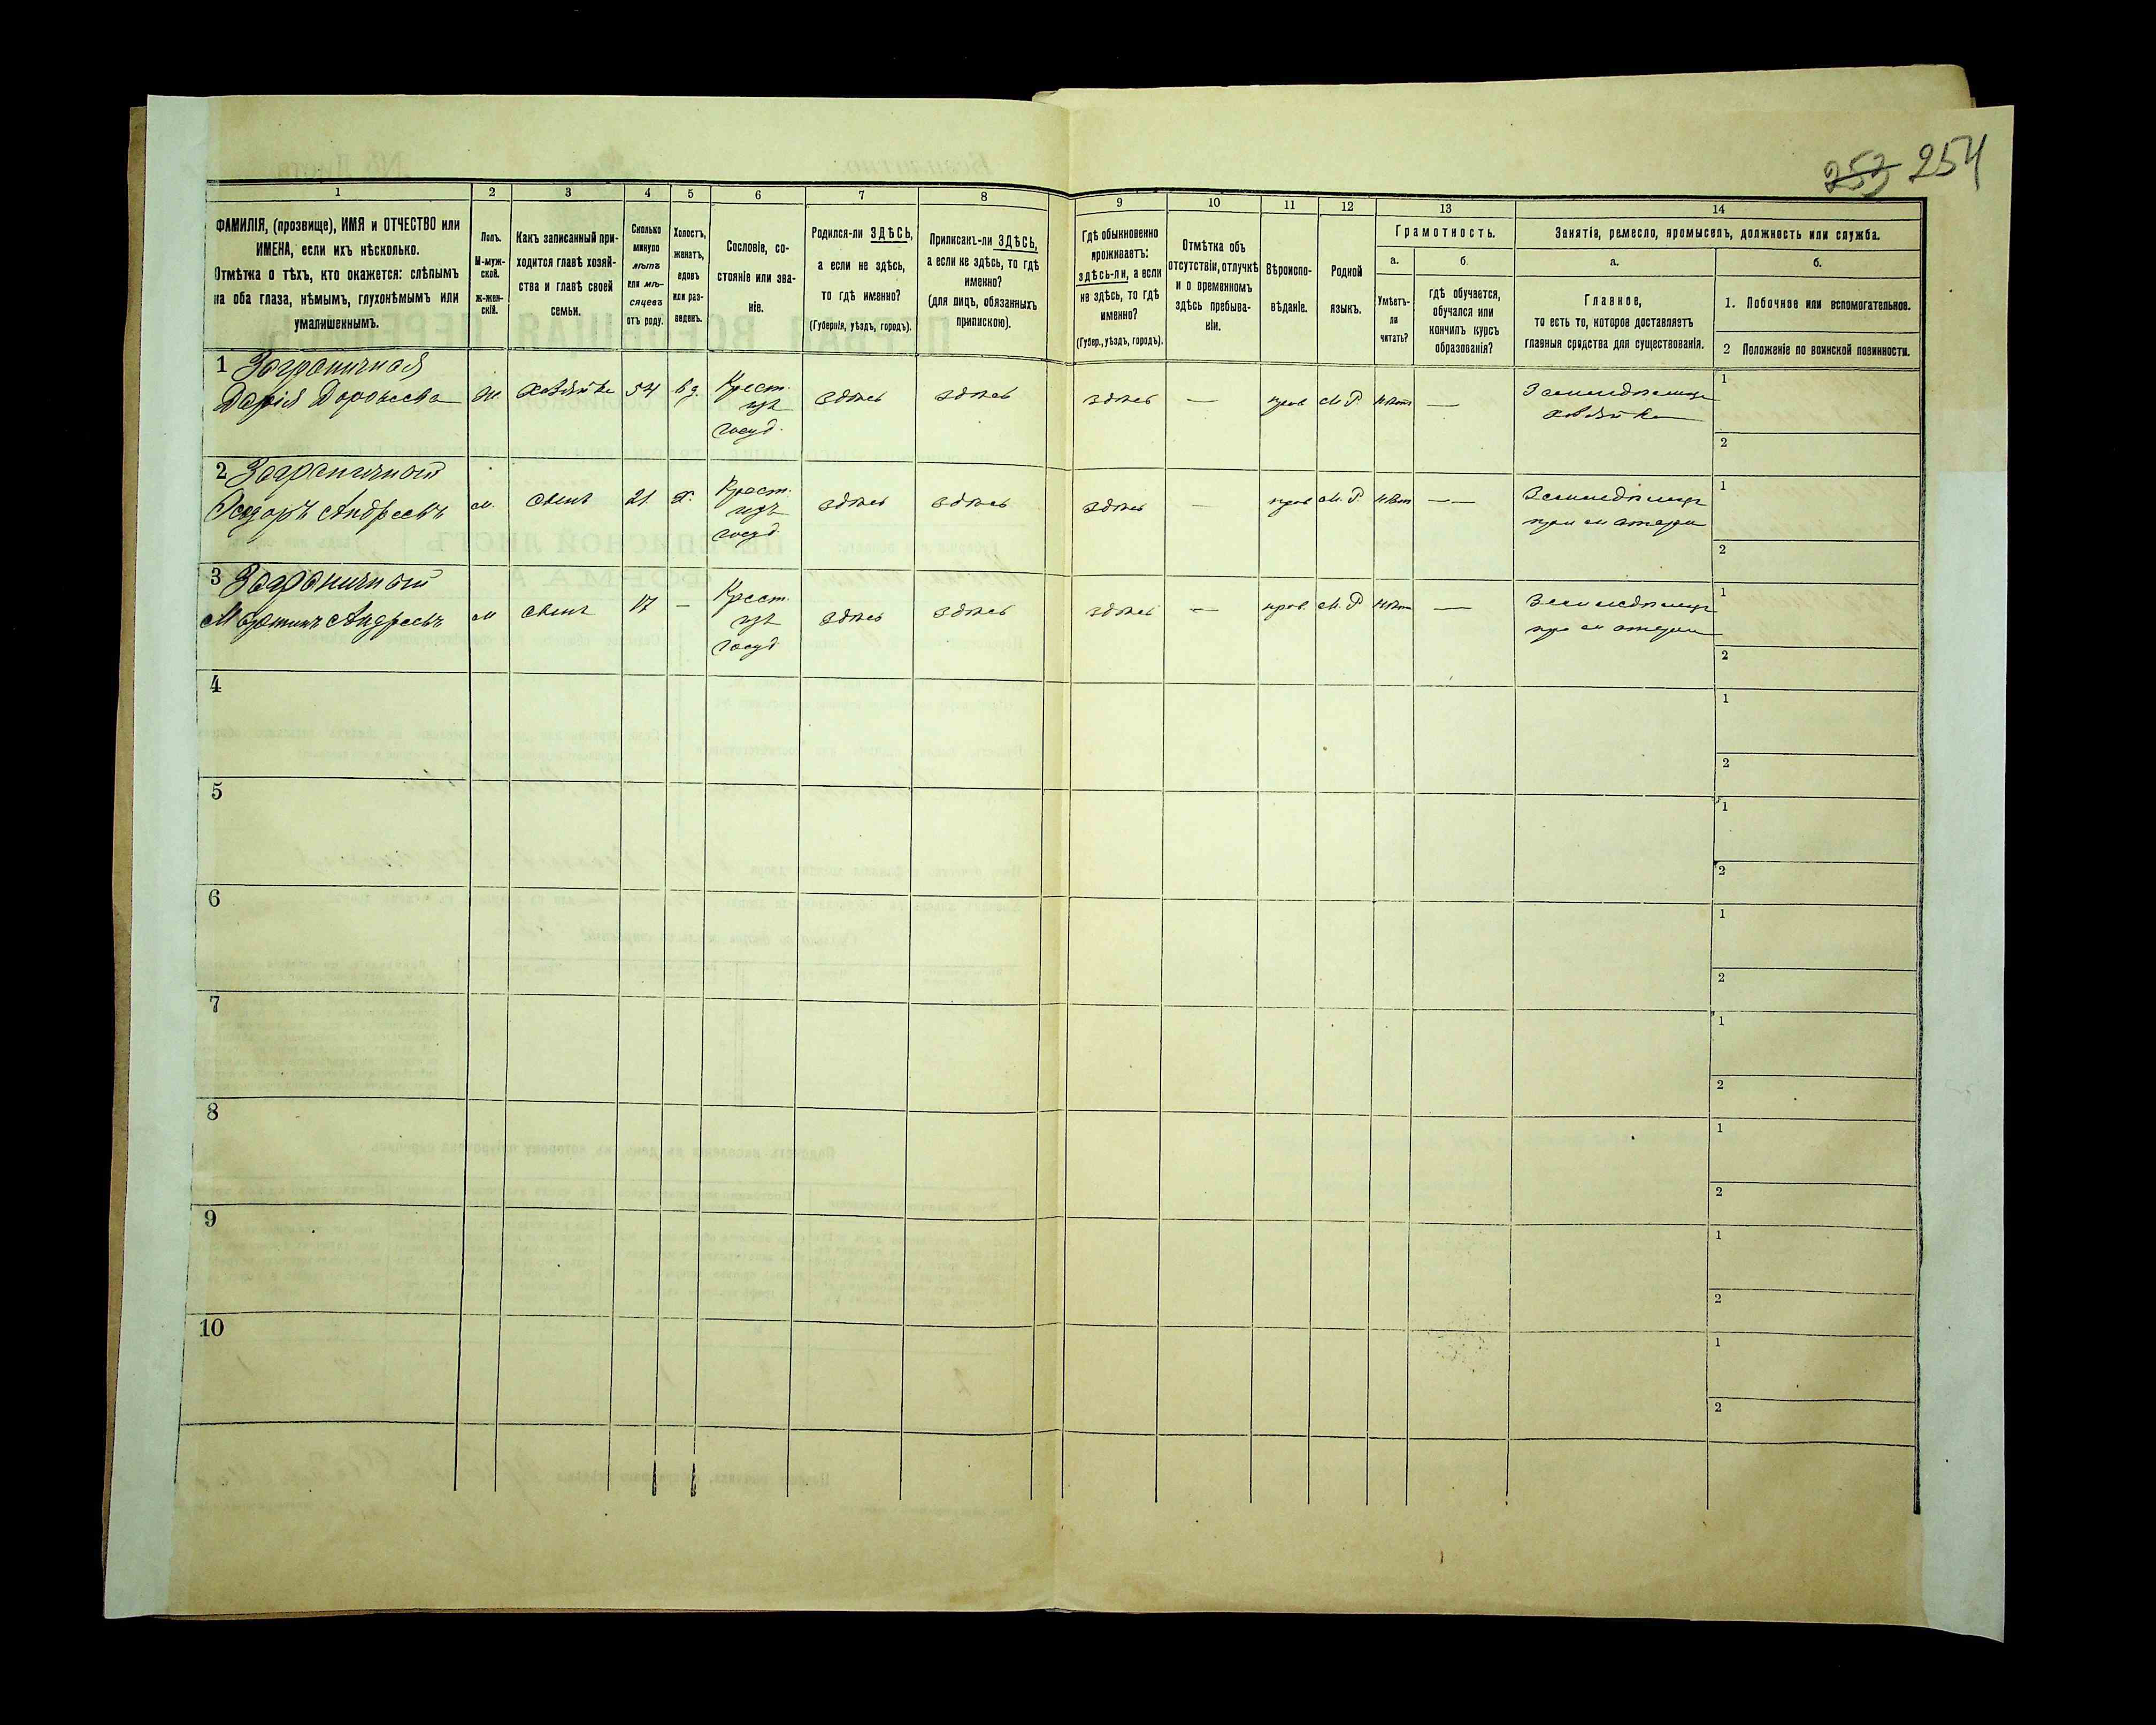 253 254
1 2 3 4 5 6 7 8 9 10 11 12 13 14
ФАМИЛІЯ, (прозвище), ИМЯ и ОТЧЕСТВО или
ИМЕНА, если ихъ нѣсколько.
Отмѣтка о тѣхъ, кто окажется: слѣпымъ
на оба глаза, нѣмымъ, глухонѣмымъ или
умалишеннымъ.
Полъ.
М-муж-
ской.
ж-жен-
скій.
Какъ записанный при-
ходится главѣ хозяй-
ства и главѣ своей
семьи.
Сколько
минуло
лѣтъ
или мѣ-
сяцевъ
отъ роду.
Холостъ,
женатъ,
вдовъ
или раз-
веденъ.
Сословіе, со-
стояніе или зва-
ніе.
Родился-ли ЗДѢСЬ,
а если не здѣсь,
то гдѣ именно?
(Губернія, уѣздъ, городъ).
Приписанъ-ли ЗДѢСЬ,
а если не здѣсь, то гдѣ
именно?
(для лицъ, обязанныхъ
припискою).
Гдѣ обыкновенно
проживаетъ:
здѣсь-ли, а если
не здѣсь, то гдѣ
именно?
(Губер., уѣздъ, городъ).
Отмѣтка объ
отсутствіи, отлучкѣ
и о временномъ
здѣсь пребыва-
ніи.
Вѣроиспо-
вѣданіе.
Родной
языкъ.
Грамотность.
а.
Умѣетъ-
ли
читать?
б.
гдѣ обучается,
обучался или
кончилъ курсъ
образованія?
Занятія, ремесло, промыселъ, должность или служба.
а.
Главное,
то есть то, которое доставляетъ
главныя средства для существованія.
б.
1. Побочное или вспомогательное.
2 Положеніе по воинской повинности.
1 Заграничная
Дарія Дорофеева ж. хозяйка 54 вд. Крест. изъ госуд. здѣсь здѣсь здѣсь — прав М. Р. нѣт — Земледѣлица хозяйка
1
2
2 Заграничный
Федоръ Андреевъ м. сынъ 21 х. Крест. изъ госуд. здѣсь здѣсь здѣсь — прав М. Р. нѣт — — Земледѣлецъ при матери
1
2
3 Заграничный
Мартинъ Андреевъ м сынъ 17 — Крест. изъ госуд здѣсь здѣсь здѣсь — прав. М. Р нѣт — Земледѣлецъ при матери
1
2
4
1
2
5
1
2
6
1
2
7
1
2
8
1
2
9
1
2
10
1
2